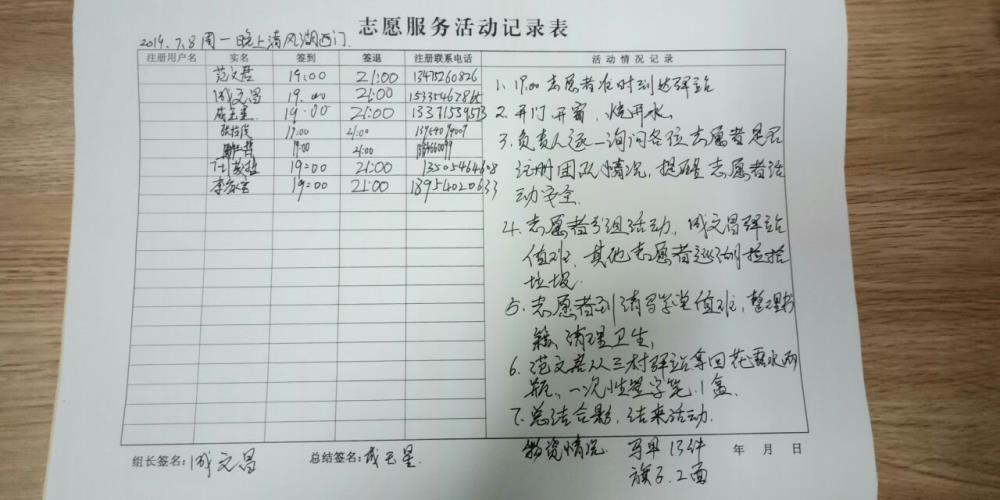 志愿服务活动记录表
2019.7.8周一晚上清风湖西门
注册用户名 实名 签到 签退 注册联系电话 活动情况记录
范文君 19:00 21:00 13475260826
成文昌 19:00 21:00
成玉星 19:00 21:00
17:00 21:00
19:00 21:00
19:00 21:00 13505464608
19:00 21:00 18954020633
1、19:00志愿者准时到达驿站
2、开门开窗,烧开水。
3、负责人逐一询问各位志愿者是否
注册团队情况,提醒志愿者活
动安全.
4、志愿者分组活动,成文昌驿站
值班,其他志愿者巡湖捡拾
垃圾.
5、志愿者到清写学堂值班,整理书
籍、清理卫生,
6、范文君从三村驿站拿回花露水两
瓶、一次性签字笔1盒.
7、总结合影,结束活动.
组长签名:成文昌 总结签名:成玉星. 物资情况 马甲13件 年 月 日
旗子2面